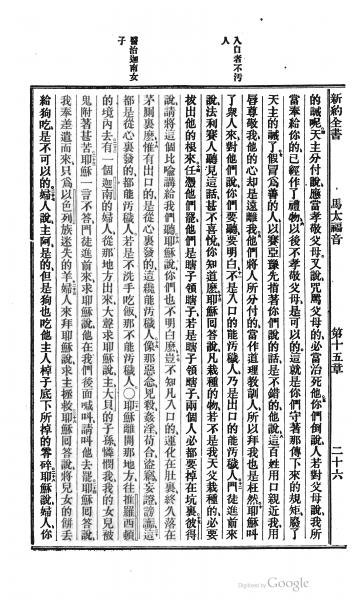 新約全書 馬太福音 第十五章 二十六
的誡呢天主分付說應當孝敬父母又說咒罵父母的必當治死他你們倒說人若對父母說我所
當奉給你的已經作了禮物以後不孝敬父母是可以的這就是你們守著那傳下來的規矩廢了
天主的誡了假冒爲善的人以賽亞豫先指著你們說的話是不錯的他說這百姓用口親近我用
唇尊敬我他的心却是遠離我他們將人所分付的當作道理教訓人所以拜我也是枉然耶穌叫
入口者不污
人
了衆人來對他們說你們要聽要明白不是入口的能污穢人乃是出口的能污穢人門徒進前來
說法利賽人聽見這話甚不喜悅你知道麽耶穌回答說凡栽種的物若不是我天父栽種的必要
拔出他的根來任憑他們罷他們是瞎子領瞎子若是瞎子領瞎子兩個人必都要掉在坑裏彼得
說請將這個比喻講給我們聽耶穌說你們也不明白麽豈不知凡入口的運化在肚裏終久落在
茅厠裏麽惟有出口的是從心裏發的這纔能污穢人像那惡念兇殺姦淫苟合盜竊妄證謗讟這
醫治迦南女
子
都是從心裏發的都能污穢人若是不洗手吃飯那不能污穢人〇耶穌離開那地方往推羅西頓
的境內去有一個迦南的婦人從那地方出來大聲求耶穌說主大辟的子孫憐憫我我的女兒被
鬼附著甚苦耶穌一言不答門徒進前來求耶穌說他在我們後面喊叫請叫他去罷耶穌回答說
我奉差遣而來只爲以色列族迷失的羊婦人來拜耶穌說求主拯救耶穌回答說將兒女的餅丟
給狗吃是不可以的婦人說主阿是的但是狗也吃他主人棹子底下所掉的零碎耶穌說婦人你
Digitized by Google